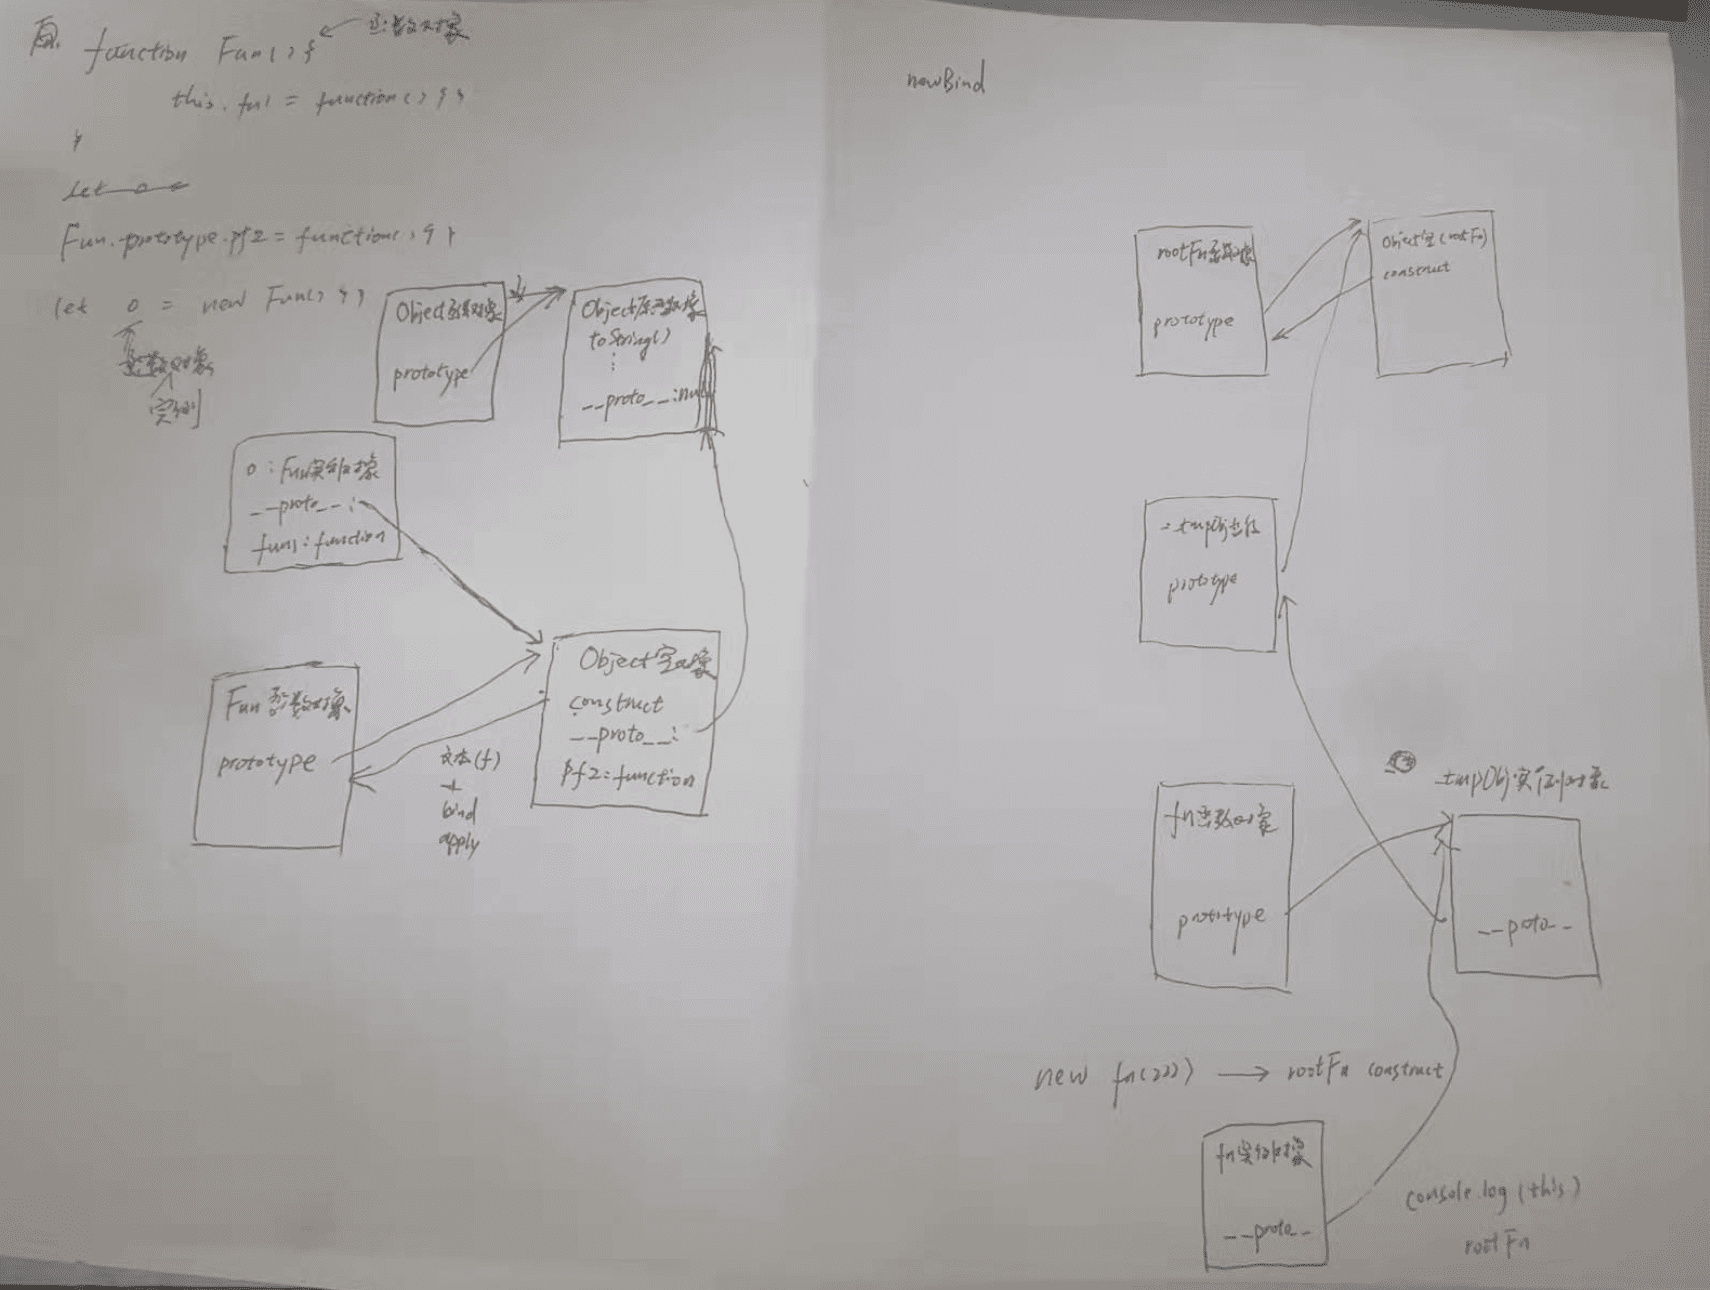 function Fun(){
函数对象
this.fn1 = function(){}
}
let o =
Fun.prototype.pf2 = function(){}
let o = new Fun(){}
函数对象
实例
Object函数对象
prototype
Object原型对象
toString()
⋮
__proto__:null
o:Fun实例对象
__proto__:
fun1:function
Fun函数对象
prototype
Object空对象
construct
__proto__:
pf2:function
文本(f)
+
bind
apply
newBind
rootFn函数对象
prototype
Object空(rootFn)
construct
prototype
fn函数对象
prototype
_tmpObj实例对象
__proto__
new fn(222) → rootFn construct
fn实例对象
__proto__
console.log(this)
rootFn